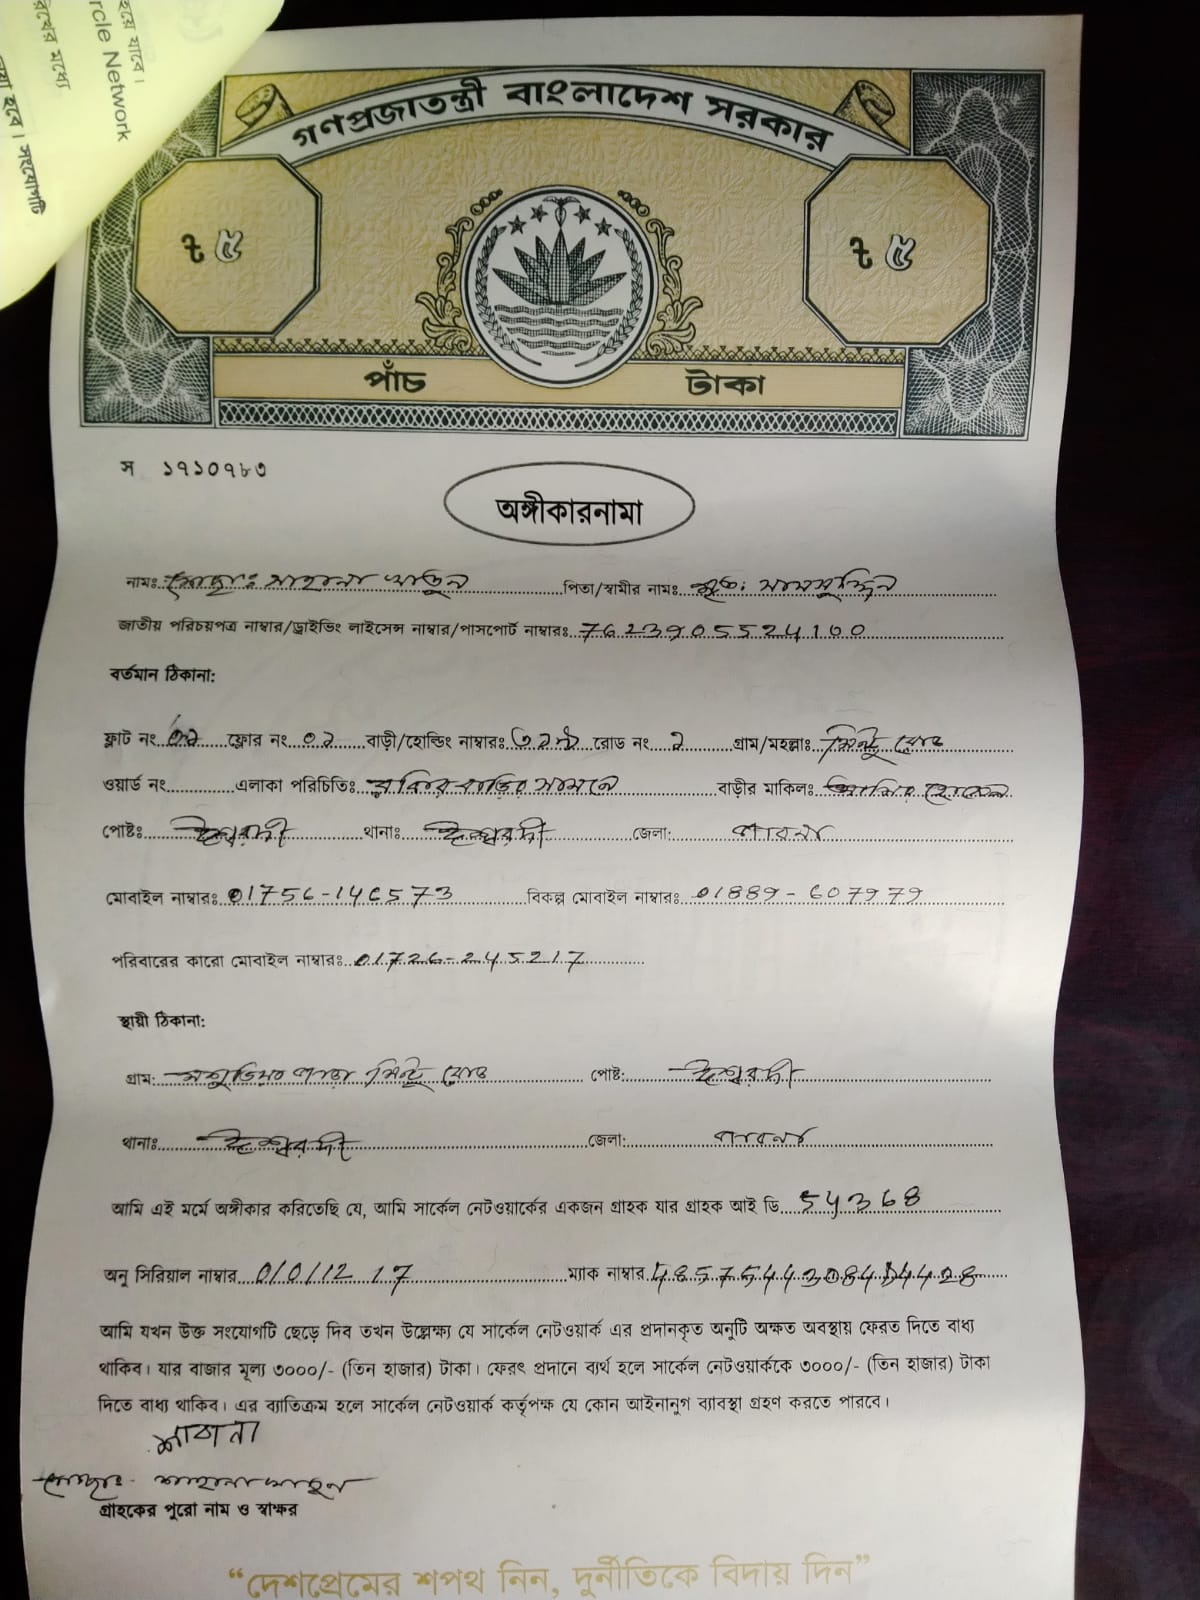 হয়ে যাবে।
rcle Network
রখের মধ্যে
হবে। সহযোগটি
গণপ্রজাতন্ত্রী বাংলাদেশ সরকার
৳ ৫
৳ ৫
পাঁচ টাকা
স ১৭১০৭৮৩
অঙ্গীকারনামা
নামঃ মোছাঃ সাহানা খাতুন পিতা/স্বামীর নামঃ মৃতঃ সামসুদ্দিন
জাতীয় পরিচয়পত্র নাম্বার/ড্রাইভিং লাইসেন্স নাম্বার/পাসপোর্ট নাম্বারঃ 7623905524100
বর্তমান ঠিকানা:
ফ্লাট নং ফ্লোর নং ০১ বাড়ী/হোল্ডিং নাম্বারঃ রোড নং ১ গ্রাম/মহল্লাঃ পিন্টু রোড
ওয়ার্ড নং এলাকা পরিচিতিঃ বাড়ির সামনে বাড়ীর মাকিলঃ হোসেন
পোষ্টঃ ঈশ্বরদী থানাঃ ঈশ্বরদী জেলা: পাবনা
মোবাইল নাম্বারঃ 01756-146573 বিকল্প মোবাইল নাম্বারঃ 01889-607979
পরিবারের কারো মোবাইল নাম্বারঃ 01726-245217
স্থায়ী ঠিকানা:
গ্রাম: মশুড়িয়া পাড়া পিন্টু রোড পোষ্ট: ঈশ্বরদী
থানাঃ ঈশ্বরদী জেলা: পাবনা
আমি এই মর্মে অঙ্গীকার করিতেছি যে, আমি সার্কেল নেটওয়ার্কের একজন গ্রাহক যার গ্রাহক আই ডি 54368
অনু সিরিয়াল নাম্বার 0/0/12 17 ম্যাক নাম্বার
আমি যখন উক্ত সংযোগটি ছেড়ে দিব তখন উল্লেক্ষ্য যে সার্কেল নেটওয়ার্ক এর প্রদানকৃত অনুটি অক্ষত অবস্থায় ফেরত দিতে বাধ্য
থাকিব। যার বাজার মূল্য ৩০০০/- (তিন হাজার) টাকা। ফেরৎ প্রদানে ব্যর্থ হলে সার্কেল নেটওয়ার্ককে ৩০০০/- (তিন হাজার) টাকা
দিতে বাধ্য থাকিব। এর ব্যাতিক্রম হলে সার্কেল নেটওয়ার্ক কর্তৃপক্ষ যে কোন আইনানুগ ব্যাবস্থা গ্রহণ করতে পারবে।
শাহানা
মোছাঃ- শাহানা খাতুন
গ্রাহকের পুরো নাম ও স্বাক্ষর
“দেশপ্রেমের শপথ নিন, দুর্নীতিকে বিদায় দিন”